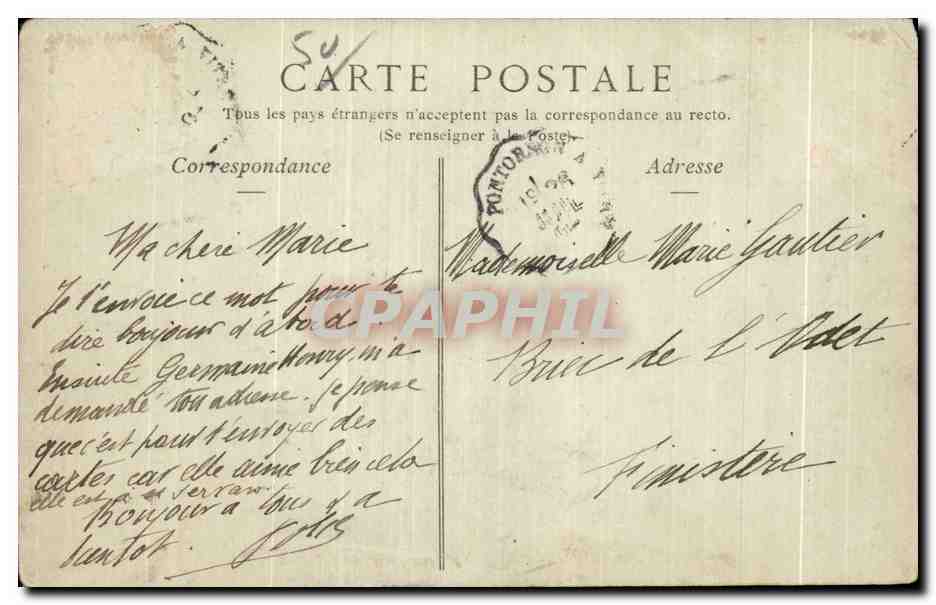 50
CARTE POSTALE
Tous les pays étrangers n'acceptent pas la correspondance au recto.
(Se renseigner à la Poste)
Correspondance
Adresse
PONTORSON A
19
26
Ma cheré Marie
Je t'envoie ce mot pour te
dire boujour d'abord.
Ensuite Germaine Henry m'a
demandé ton adresse. je pense
que c'est pour t'envoyer des
cartes car elle aime bien cela
elle est a st servan
Bonjour a tous et a
tantot.
Mademoiselle Marie Gautier
Briec de l'Odet
Finistère
CPAPHIL